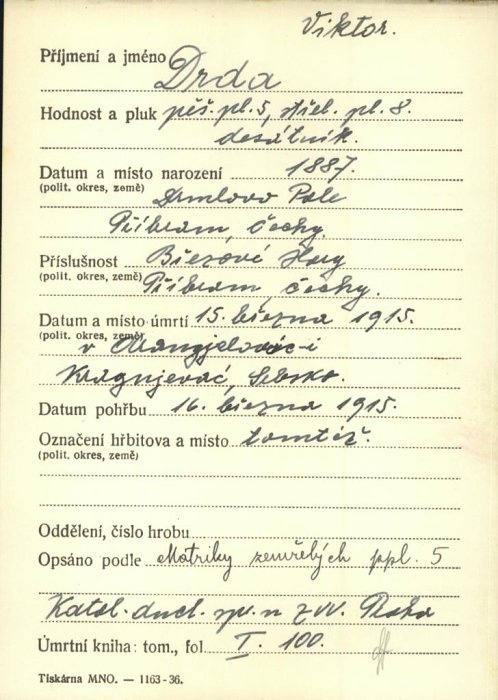 Viktor.
Příjmení a jméno Drda
Hodnost a pluk pěš. pl. 5, střel. pl. 8.
desátník.
Datum a místo narození 1887.
(polit. okres, země) Drmlovo Pole
Příbram, Čechy.
Příslušnost Březové Hory
(polit. okres, země) Příbram, Čechy.
Datum a místo úmrtí 15. března 1915.
(polit. okres, země) v
Kragujevać, Srbsko.
Datum pohřbu 16. března 1915.
Označení hřbitova a místo tomtéž.
(polit. okres, země)
Oddělení, číslo hrobu
Opsáno podle Matriky zemřelých ppl. 5
Katol. duch. spr. n ZVV. Praha
Úmrtní kniha: tom., fol. I. 100.
Tiskárna MNO. — 1163-36.